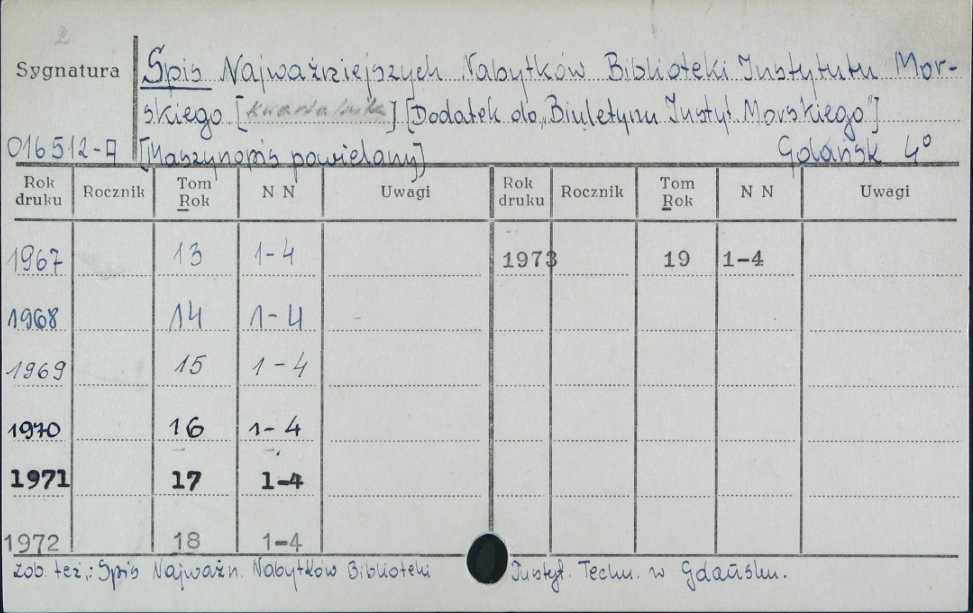 2
Sygnatura
Spis Najważniejszych Nabytków Biblioteki Instytutu Mor-
skiego [kwartalnik] [Dodatek do „Biuletynu Instyt. Morskiego"]
016512-A [Maszynopis powielany] Gdańsk 4°
Rok druku Rocznik Tom Rok N N Uwagi Rok druku Rocznik Tom Rok N N Uwagi
1967 13 1-4 1973 19 1-4
1968 14 1-4
1969 15 1-4
1970 16 1-4
1971 17 1-4
1972 18 1-4
zob. też,: Spis Najważn. Nabytków Biblioteki Instyt. Techn. w Gdańsku.